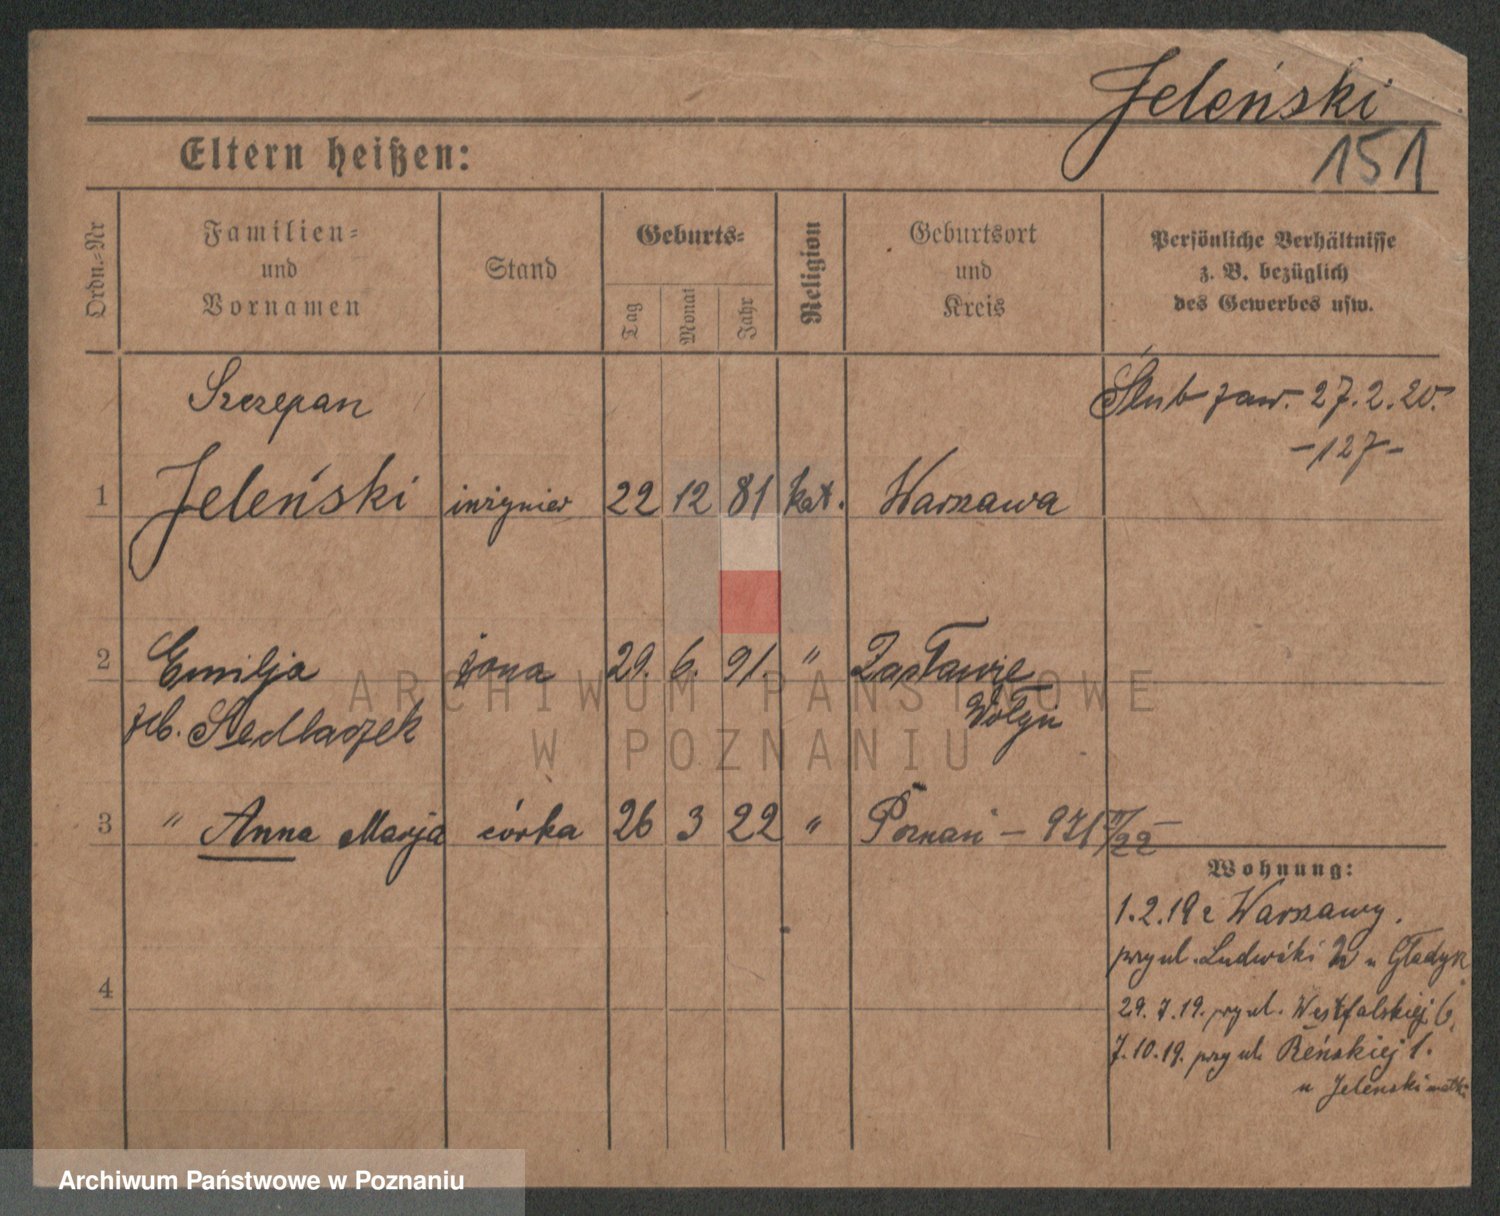 Jeleński
151
Eltern heißen:
Ordn.-Nr
Familien-
und
Vornamen
Stand
Geburts-
Tag
Monat
Jahr
Religion
Geburtsort
und
Kreis
Persönliche Verhältnisse
z. B. bezüglich
des Gewerbes usw.
Szczepan
Ślub zaw. 27.2.20.
-127-
1 Jeleński inżynier 22 12 81 kat. Warszawa
2 Emilja żona 29. 6. 91. " Zasławie
Wołyń
ARCHIWUM PAŃSTWOWE
W POZNANIU
żb. Sedlaczek
3 " Anna Marja córka 26 3 22 " Poznań - 971 /22
Wohnung:
1.2.19 z Warszawy.
przy ul. Ludwiki u Gładyk
4
29.7.19. przy ul. Westfalskiej 6.
7.10.19. przy ul. Reńskiej 1.
u Jelenski matki
Archiwum Państwowe w Poznaniu